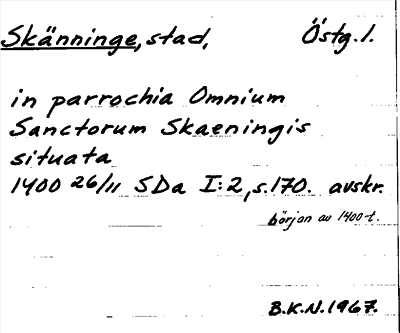 Skänninge, stad, Östg. l.
in parrochia Omnium
Sanctorum Skaeningis
situata
1400 26/11 SDa I:2, s.170. avskr.
början av 1400-t.
B.K.N. 1967.